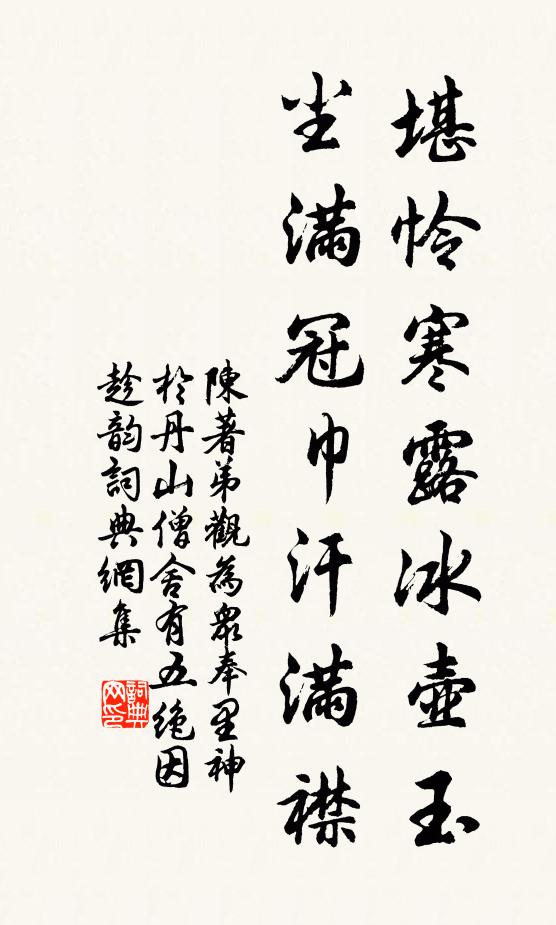 堪怜寒露冰壶玉
尘满冠巾汗满襟
陳著弟觀為衆奉里神
於丹山僧舍有五绝因
趁韵詞典網集
詞典網印